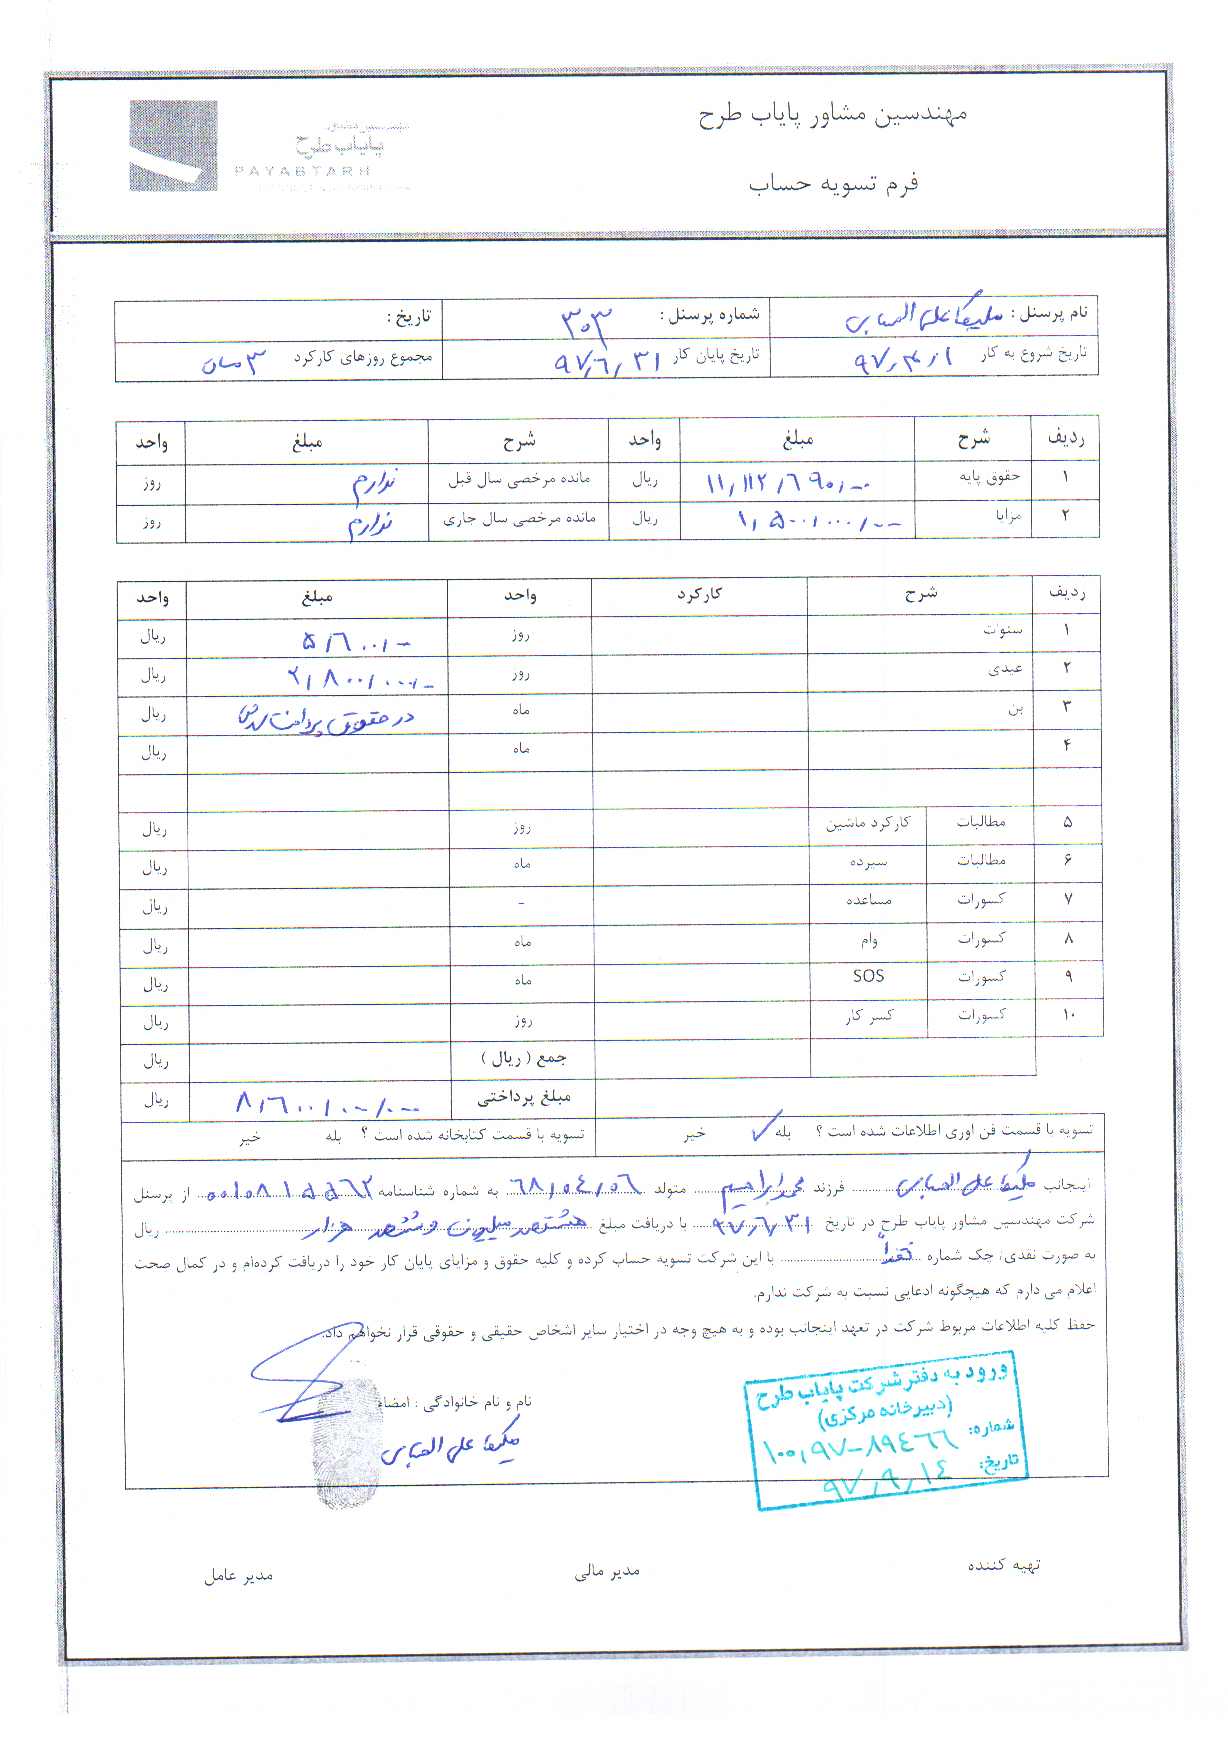 مهندسین مشاور پایاب طرح
پایاب طرح
PAYABTARH
فرم تسویه حساب
نام پرسنل : ملیکا علی العباسی شماره پرسنل : ۳۰۳ تاریخ :
تاریخ شروع به کار ۹۷,۴,۱ تاریخ پایان کار ۹۷,۶,۳۱ مجموع روزهای کارکرد ۳ ماه
ردیف شرح مبلغ واحد شرح مبلغ واحد
۱ حقوق پایه ۱۱,۱۱۲,۶۹۰,-- ریال مانده مرخصی سال قبل ندارم روز
۲ مزایا ۱,۵۰۰,۰۰۰,-- ریال مانده مرخصی سال جاری ندارم روز
ردیف شرح کارکرد واحد مبلغ واحد
۱ سنوات روز ۵,۶۰۰,- ریال
۲ عیدی روز ۲,۸۰۰,۰۰۰,- ریال
۳ بن ماه در حقوق پرداخت ریال
۴ ماه ریال
۵ مطالبات کارکرد ماشین روز ریال
۶ مطالبات سپرده ماه ریال
۷ کسورات مساعده - ریال
۸ کسورات وام ماه ریال
۹ کسورات SOS ماه ریال
۱۰ کسورات کسر کار روز ریال
جمع ( ریال ) ریال
مبلغ پرداختی ۸,۶۰۰,۰۰۰,-- ریال
تسویه با قسمت فن اوری اطلاعات شده است ؟ بله ✓ خیر تسویه با قسمت کتابخانه شده است ؟ بله خیر
اینجانب ملیکا علی العباسی فرزند محمدابراهیم متولد ۶۸,۰۴,۰۶ به شماره شناسنامه ۰۰۱۰۸۱۵۵۶۲ از پرسنل
شرکت مهندسین مشاور پایاب طرح در تاریخ ۹۷,۶,۳۱ با دریافت مبلغ هشتصد میلیون و ششصد هزار ریال
به صورت نقدی/ چک شماره نقداً با این شرکت تسویه حساب کرده و کلیه حقوق و مزایای پایان کار خود را دریافت کرده‌ام و در کمال صحت
اعلام می دارم که هیچگونه ادعایی نسبت به شرکت ندارم.
حفظ کلیه اطلاعات مربوط شرکت در تعهد اینجانب بوده و به هیچ وجه در اختیار سایر اشخاص حقیقی و حقوقی قرار نخواهم داد.
نام و نام خانوادگی : امضاء
ملیکا علی العباسی
ورود به دفتر شرکت پایاب طرح
(دبیرخانه مرکزی)
شماره: ۱۰۰,۹۷-۸۹۴۶۶
تاریخ: ۹۷,۹,۱۴
تهیه کننده مدیر مالی مدیر عامل